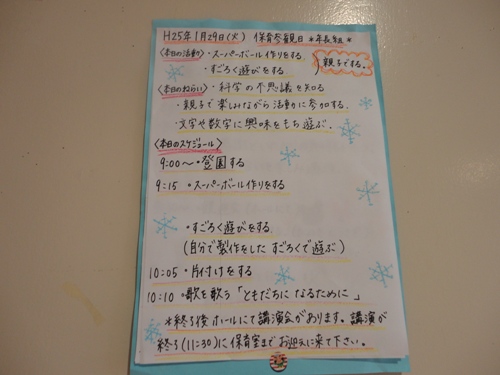 H25年1月29日(火) 保育参観日 *年長組*
〈本日の活動〉・スーパーボール作りをする
・すごろく遊びをする
親子でする。
〈本日のねらい〉・科学の不思議を知る
・親子で楽しみながら活動に参加する.
・文字や数字に興味をもち遊ぶ.
〈本日のスケジュール〉
9:00～・登園する
9:15 ・スーパーボール作りをする
・すごろく遊びをする
(自分で製作をした すごろくで遊ぶ)
10:05 ・片付けをする
10:10 ・歌を歌う「ともだちに なるために」
*終了後ホールにて講演会があります。講演が
終了(11:30)に保育室まで お迎えに来て下さい。